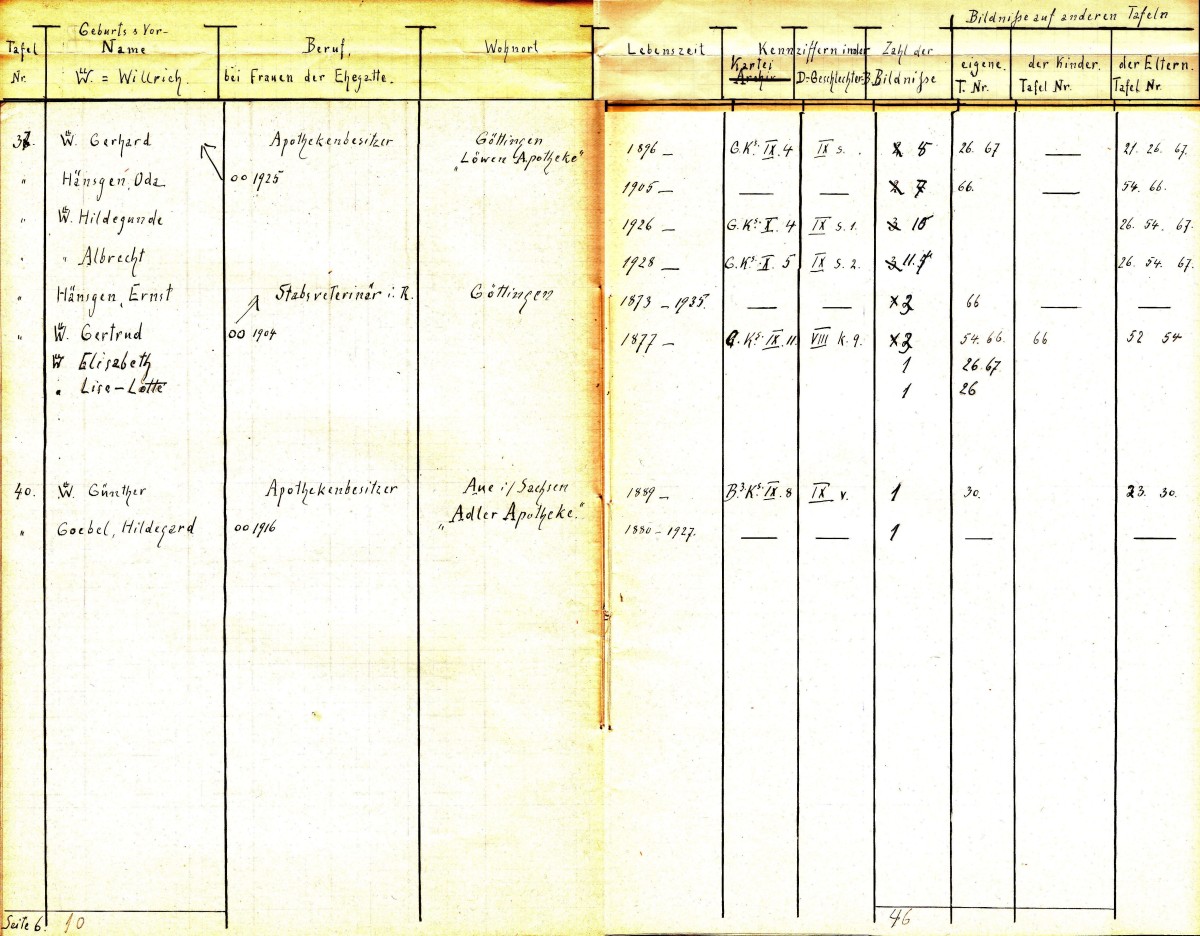 Bildnisse auf anderen Tafeln
Tafel Nr. Geburts & Vor-Name W. = Willrich. Beruf, bei Frauen der Ehegatte. Wohnort Lebenszeit Kennziffern in der Kartei Archiv D=Geschlechter-B. Zahl der Bildnisse eigene. T. Nr. der Kinder. Tafel Nr. der Eltern. Tafel Nr.
37. W. Gerhard Apothekenbesitzer Göttingen 1896 — G.Ks. IX. 4 IX s. 5 26. 67 — 21. 26. 67.
„Löwen Apotheke"
" Hänsgen, Oda oo 1925 1905 — — — 7 66. — 54. 66.
" W. Hildegunde 1926 — G.Ks. X. 4 IX s. 1. 3 10 26. 54. 67.
" " Albrecht 1928 — G.Ks. X. 5 IX s. 2. 3 11. 26. 54. 67.
" Hänsgen, Ernst Stabsveterinär i. R. Göttingen 1873 — 1935. — — 2 66 — —
" W. Gertrud oo 1904 1877 — G.Ks. IX. 11. VIII k. 9. 2 54. 66. 66 52 54
W Elisabeth 1 26.67.
" Lise-Lotte 1 26
40. W. Günther Apothekenbesitzer Aue i/ Sachsen 1889 — B.3.Ks. IX. 8 IX v. 1 30. 23. 30.
„Adler Apotheke."
" Goebel, Hildegard oo 1916 1880 — 1927. — — 1 — —
Seite 6. 10 46